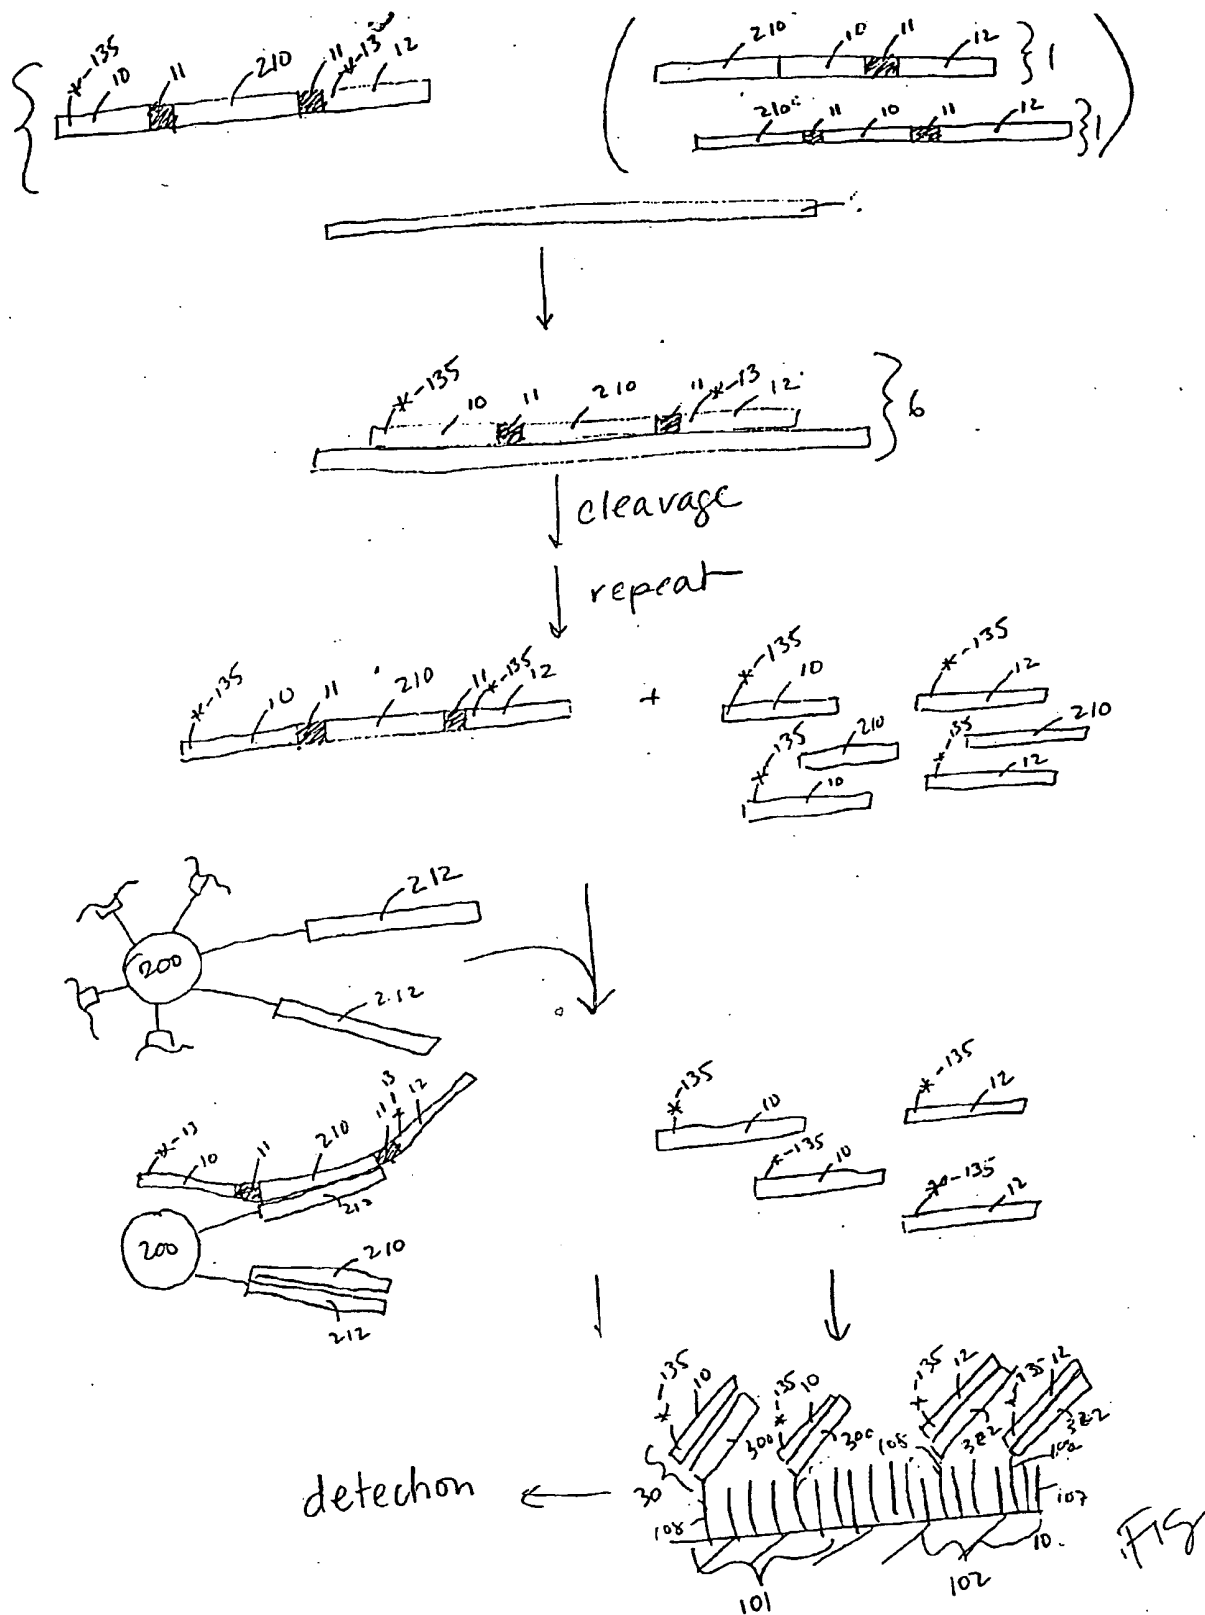 *-135 10 11 210 11 *-13 12
210 10 11 12 } 1
210 11 10 11 12 } 1
*-135 10 11 210 11 *-13 12 } 6
cleavage
repeat
*-135 10 11 210 11 *-135 12 + *-135 10 *-135 12
*-135 210 210
10 12
212
200
212
*-135 10 *-135 12
*-13 10 11 210 11 13 12
*-135 10
212 *-135 12
200
210
212
*-135 10 *-135 10 *-135 12 *-135 12
300 300 108 322 322
detection ← 30
108 107
10
101 102
FIG